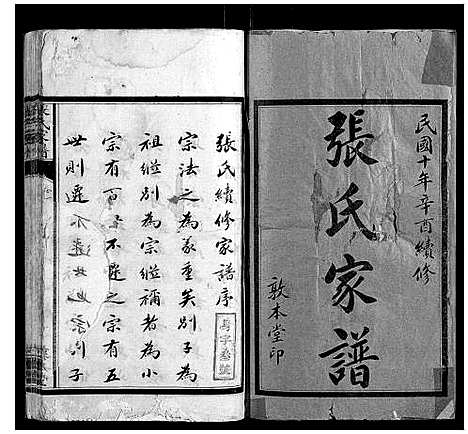 民國十年辛酉續修
張氏家譜
敦本堂印
張氏續修家譜序
宗法之為義重矣別子為
祖繼別為宗繼禰者為小
宗有百世不遷之宗有五
世則遷之宗別子